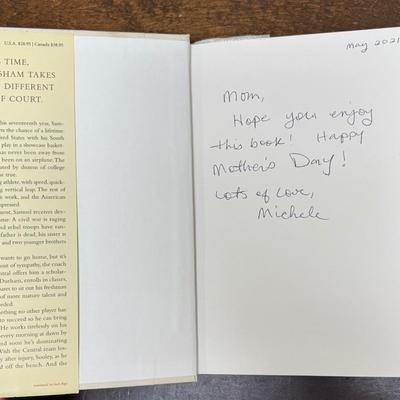 U.S.A. $28.95 | Canada $38.95
TIME,
SHAM TAKES
DIFFERENT
F COURT.
his seventeenth year, Sam-
n the chance of a lifetime:
ited States with his South
play in a showcase basket-
has never been away from
been on an airplane. The
uated by dozens of college
e true.
g athlete, with speed, quick-
ng vertical leap. The rest of
work, and the American
mpressed.
ment, Samuel receives dev-
ome: A civil war is raging
nd rebel troops have ran-
father is dead, his sister is
and two younger brothers
wants to go home, but it's
out of sympathy, the coach
entral offers him a scholar-
Durham, enrolls in classes,
pares to sit out his freshman
of more mature talent and
eeded.
mething no other player has
to succeed so he can bring
He works tirelessly on his
every morning at dawn by
and soon he's dominating
With the Central team los-
y after injury, Sooley, as he
d off the bench. And the
May 2021
Mom,
Hope you enjoy
this book! Happy
Mother's Day!
Lots of Love,
Michele